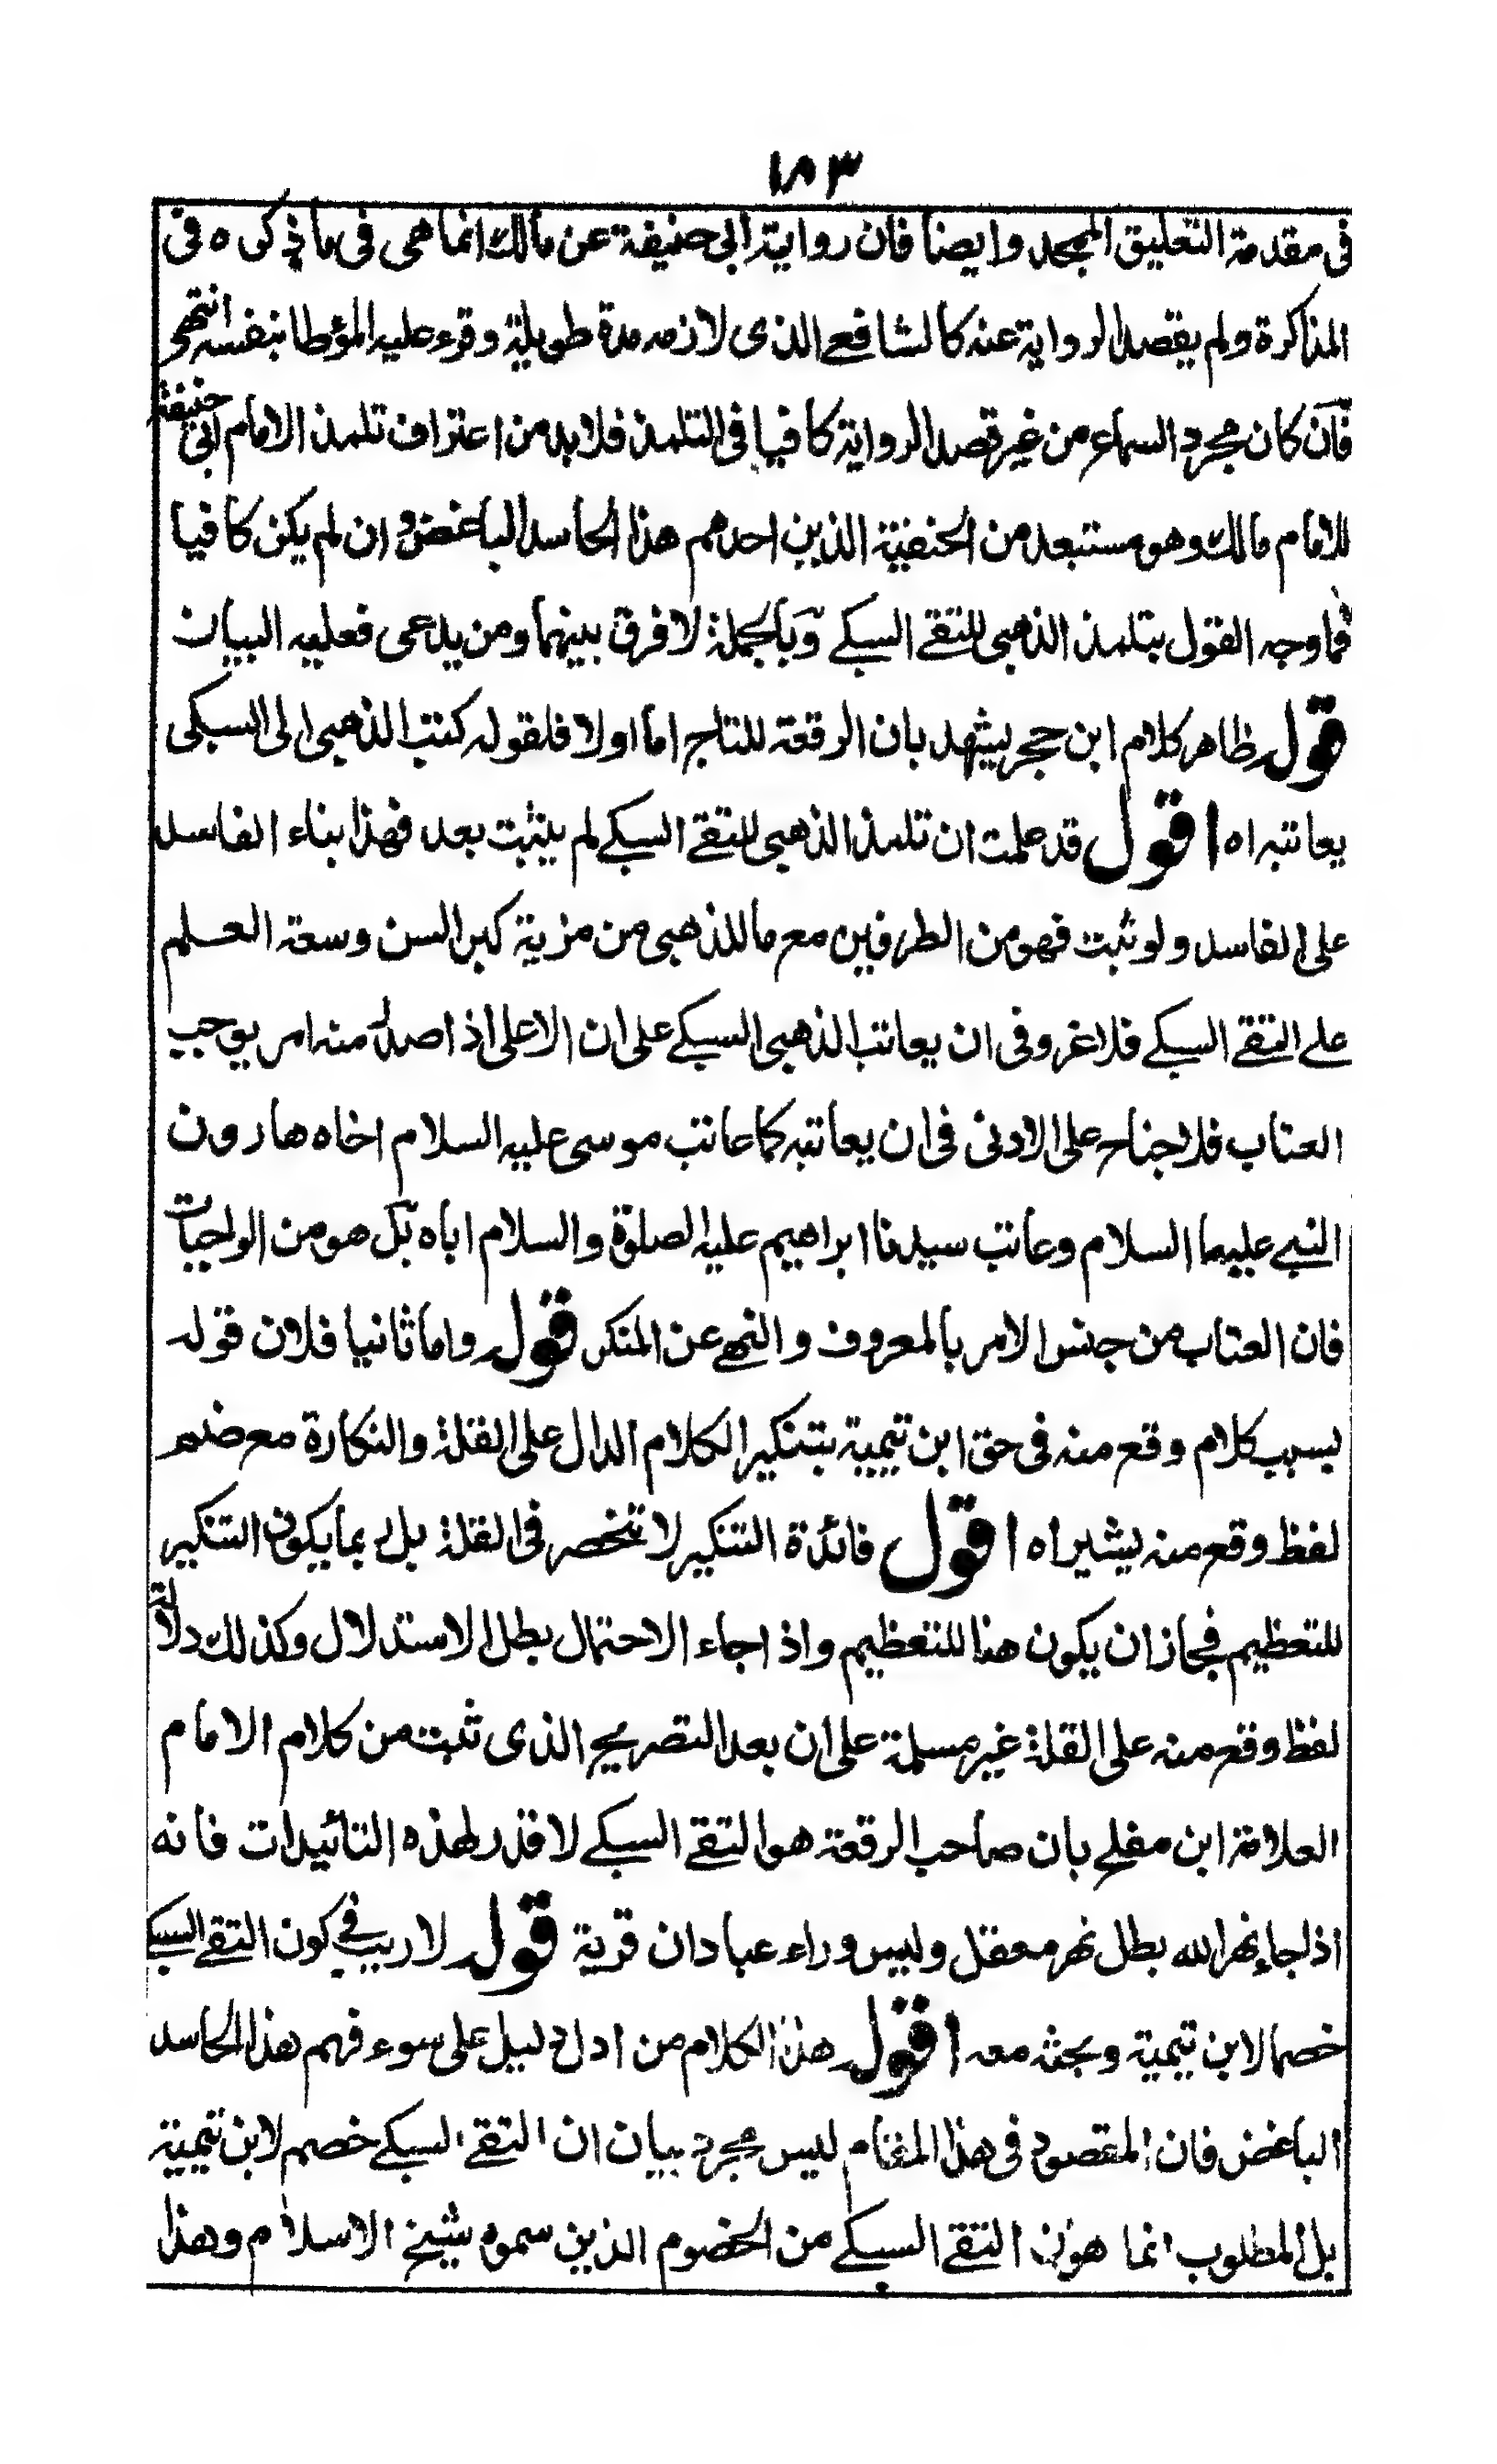 ١٨٣
فى مقدمة التعليق الممجد وايضا فان رواية ابى حنيفة عن مالك انما هى فى ما ذكره فى
المذاكرة ولم يقصد الرواية عنه كالشافعے الذى لازمه مدة طويلة وقرء عليه المؤطا بنفسه انتهى
فآن كان مجرد السماع من غير قصد الرواية كافيا فى التلمذ فلابد من اعتراف تلمذ الامام ابى حنيفة
للامام مالك وهو مستبعد من الحنفية الذين احدهم هذا الحاسد الباغض وان لم يكن كافيا
فما وجه القول بتلمذ الذهبى للتقے السبكے وبالجملة لا فرق بينهما ومن يدعى فعليه البيان
قوله ظاهر كلام ابن حجر يشهد بان الرقعة للتاج اما اولا فلقوله كتب الذهبى الى السبكى
يعاتبه اه اقول قد علمت ان تلمذ الذهبى للتقے السبكے لم يثبت بعد فهذا بناء الفاسد
على الفاسد ولو ثبت فهو من الطرفين مع ما للذهبى من مزية كبر السن وسعة العلم
علے التقے السبكے فلا غرو فى ان يعاتب الذهبى السبكے على ان الاعلى اذا صدر منه امر يوجب
العتاب فلا جناح على الادنى فى ان يعاتبه كما عاتب موسى عليه السلام اخاه هارون
النبے عليهما السلام وعاتب سيدنا ابراهيم عليه الصلوة والسلام اباه بل هو من الواجبات
فان العتاب من جنس الامر بالمعروف والنهے عن المنكر قوله واما ثانيا فلان قوله
بسبب كلام وقع منه فى حق ابن تيمية بتنكير الكلام الدال على القلة والنكارة مع ضم
لفظ وقع منه يشير اه اقول فائدة التنكير لا تنحصر فى القلة بل ربما يكون التنكير
للتعظيم فجاز ان يكون هنا للتعظيم واذا جاء الاحتمال بطل الاستدلال وكذلك دلالة
لفظ وقع منه على القلة غير مسلمة على ان بعد التصريح الذى ثبت من كلام الامام
العلامة ابن مفلح بان صاحب الرقعة هو التقے السبكے لا قدر لهذه التائيدات فانه
اذا جاء نهر الله بطل نهر معقل وليس وراء عبادان قرية قوله لا ريب فے كون التقے السبكے
خصما لابن تيمية وبحثه معه اقول هذا الكلام من ادل دليل على سوء فهم هذا الحاسد
الباغض فان المقصود فى هذا المقام ليس مجرد بيان ان التقے السبكے خصم لابن تيمية
بل المطلوب انما هو ان التقے السبكے من الخصوم الذين سموه شيخ الاسلام وهذا